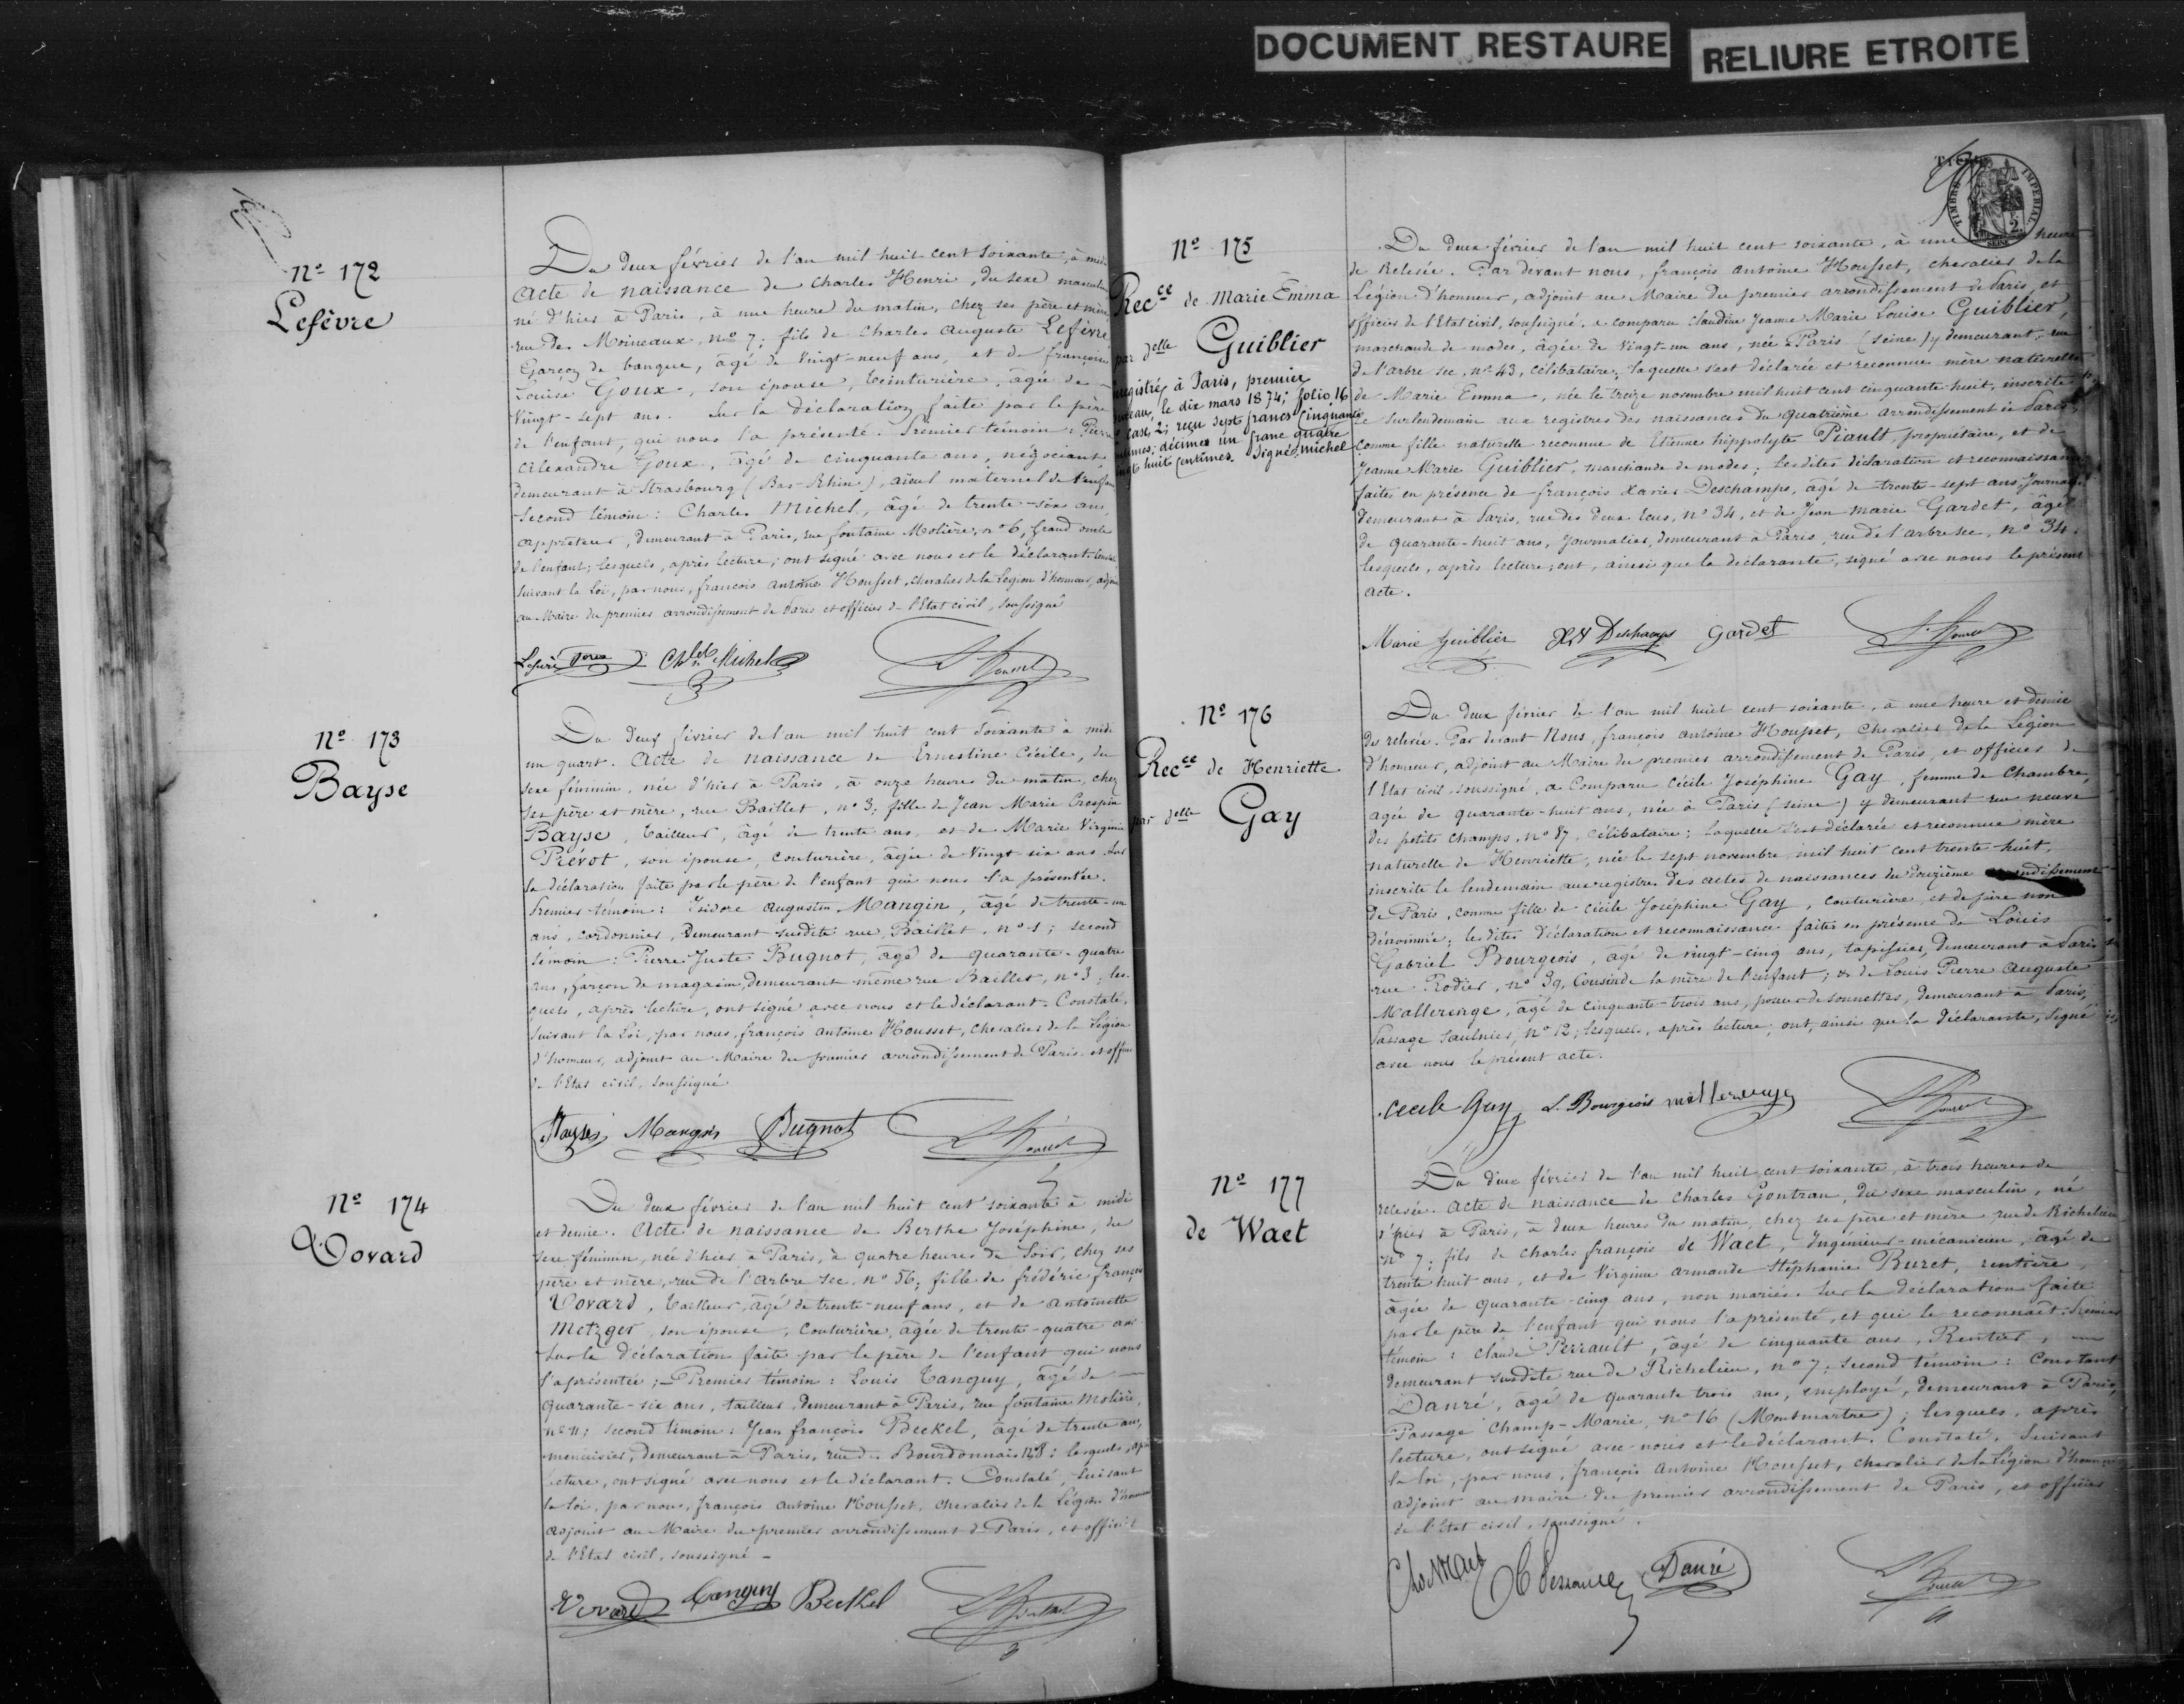 DOCUMENT RESTAURE
RELIURE ETROITE
Nº 172
Lefèvre
Du deux février de l'an mil huit cent soixante, à midi
Acte de naissance de Charles Henri, du sexe masculin
né d'hier à Paris, à une heure du matin, chez ses père et mère
rue des Moineaux, nº 7; fils de Charles Auguste Lefèvre
Garçon de banque, âgé de vingt-neuf ans, et de françoise
Louise Goux, son épouse, teinturière, âgée de
vingt-sept ans. Sur la déclaration faite par le père
de l'enfant, qui nous l'a présenté. Premier témoin: Pierre
Alexandre Goux, âgé de cinquante ans, négociant
demeurant à Strasbourg (Bas-Rhin), aïeul maternel de l'enfant
Second témoin: Charles Michel, âgé de trente-six ans,
apprêteur, demeurant à Paris, rue fontaine Molière, nº 6, Grand oncle
de l'enfant; lesquels, après lecture, ont signé avec nous et le déclarant. Constaté
suivant la Loi, par nous, françois antoine Housset, chevalier de la Légion d'honneur, adjoint
au Maire du premier arrondissement de Paris et officier de l'Etat civil, soussigné
Lefèvre Goux Ch Michel
Nº 173
Bayse
Du deux février de l'an mil huit cent soixante à midi
un quart. Acte de naissance de Ernestine Cécile, du
sexe féminin, née d'hier à Paris, à onze heures du matin, chez
ses père et mère, rue Baillet, nº 3; fille de Jean Marie Crespin
Bayse, tailleur, âgé de trente ans, et de Marie Virginie
Prévot, son épouse, couturière, âgée de vingt six ans. Sur
la déclaration faite par le père de l'enfant qui nous l'a présentée.
Premier témoin: Isidore Augustin Mangin, âgé de trente-un
ans, cordonnier, demeurant susdite rue Baillet, nº 1; second
témoin: Pierre Juste Bugnot, âgé de quarante-quatre
ans, garçon de magasin, demeurant même rue Baillet, nº 3; les-
quels, après lecture, ont signé avec nous et le déclarant. Constaté,
suivant la Loi, par nous, françois antoine Housset, chevalier de la Légion
d'honneur, adjoint au Maire du premier arrondissement de Paris et officier
de l'Etat civil, soussigné
Bayse Mangin Bugnot
Nº 174
Vovard
Du deux février de l'an mil huit cent soixante à midi
et demie. Acte de naissance de Berthe Joséphine, du
sexe féminin, née d'hier à Paris, à quatre heures du soir, chez ses
père et mère, rue de l'arbre sec, nº 56; fille de frédéric françois
Vovard, tailleur, âgé de trente-neuf ans, et de antoinette
Metzger, son épouse, couturière, âgée de trente-quatre ans
Sur la déclaration faite par le père de l'enfant qui nous
l'a présentée; Premier témoin: Louis Tanguy, âgé de
quarante-six ans, tailleur, demeurant à Paris, rue fontaine Molière,
nº 11; second témoin: Jean françois Beckel, âgé de trente ans,
menuisier, demeurant à Paris, rue des Bourdonnais; lesquels, après
lecture, ont signé avec nous et le déclarant. Constaté, suivant
la Loi, par nous, françois antoine Housset, chevalier de la Légion d'honneur
adjoint au Maire du premier arrondissement de Paris, et officier
de l'Etat civil, soussigné
Vovard Tanguy Beckel
TIMBRE IMPERIAL
SEINE
Nº 175
Recce de Marie Emma
Guiblier
par delle
Enregistré à Paris, premier
bureau, le dix mars 1874; folio 16
case 2; reçu sept francs cinquante
centimes; décimes un franc quatre
vingt huit centimes. Signé: Michel
Du deux février de l'an mil huit cent soixante, à une heure
de Relevée. Par devant nous, françois antoine Housset, chevalier de la
Légion d'honneur, adjoint au Maire du premier arrondissement de Paris, et
officier de l'Etat civil, soussigné, a comparu Claudine Jeanne Marie Louise Guiblier,
marchande de modes, âgée de vingt-un ans, née à Paris (Seine) y demeurant, rue
de l'arbre sec, nº 43, célibataire; laquelle s'est déclarée et reconnue mère naturelle
de Marie Emma, née le treize novembre mil huit cent cinquante-huit, inscrite
le surlendemain aux registres des naissances du quatrième arrondissement de Paris,
comme fille naturelle reconnue de Etienne hippolyte Piault, propriétaire, et de
Jeanne Marie Guiblier, marchande de modes; lesdites déclaration et reconnaissance
faites en présence de françois Xavier Deschamps, âgé de trente-sept ans, Journalier
demeurant à Paris, rue des deux écus, nº 34, et de Jean Marie Gardet, âgé
de quarante-huit ans, Journalier, demeurant à Paris, rue de l'arbre sec, nº 34.
lesquels, après lecture; ont, ainsi que la déclarante, signé avec nous le présent
acte.
Marie Guiblier Deschamps Gardet
Nº 176
Recce de Henriette
par delle Gay
Du deux février de l'an mil huit cent soixante, à une heure et demie
de relevée. Par devant Nous, françois antoine Housset, Chevalier de la Légion
d'honneur, adjoint au Maire du premier arrondissement de Paris, et officier de
l'Etat civil, soussigné, a Comparu Cécile Joséphine Gay, femme de Chambre,
âgée de quarante-huit ans, née à Paris (Seine) y demeurant rue neuve
des petits champs, nº 87, célibataire; laquelle s'est déclarée et reconnue mère
naturelle de Henriette, née le sept novembre mil huit cent trente-huit,
inscrite le lendemain aux registres des actes de naissances du douzième arrondissement
de Paris, comme fille de Cécile Joséphine Gay, couturière, et de père non
dénommé; lesdites déclaration et reconnaissance faites en présence de Louis
Gabriel Bourgeois, âgé de vingt-cinq ans, tapissier, demeurant à Paris
rue Rodier, nº 39, Cousin de la mère de l'enfant; & de Louis Pierre Auguste
Mallerenge, âgé de cinquante-trois ans, poseur de sonnettes, demeurant à Paris,
Passage Saulnier, nº 12; lesquels, après lecture, ont, ainsi que la déclarante, signé
avec nous le présent acte.
Cecile Gay L. Bourgeois
Nº 177
de Waet
Du deux février de l'an mil huit cent soixante, à trois heures de
relevée. Acte de naissance de Charles Gontran, du sexe masculin, né
d'hier à Paris, à deux heures du matin, chez ses père et mère rue de Richelieu
nº 7; fils de Charles françois de Waet, Ingénieur-mécanicien, âgé de
trente huit ans, et de Virginie armande Stéphanie Buret, rentière,
âgée de quarante-cinq ans, non mariés. Sur la déclaration faite
par le père de l'enfant qui nous l'a présenté, et qui le reconnait. Premier
témoin: Claude Perrault, âgé de cinquante ans, Rentier,
demeurant susdite rue de Richelieu, nº 7; Second témoin: Constant
Danré, âgé de quarante trois ans, employé, demeurant à Paris,
Passage Champ-Marie, nº 16 (Montmartre); lesquels, après
lecture, ont signé avec nous et le déclarant. Constaté, Suivant
la loi, par nous, françois Antoine Housset, chevalier de la Légion d'honneur
adjoint au maire du premier arrondissement de Paris, et officier
de l'Etat civil, soussigné.
Danré